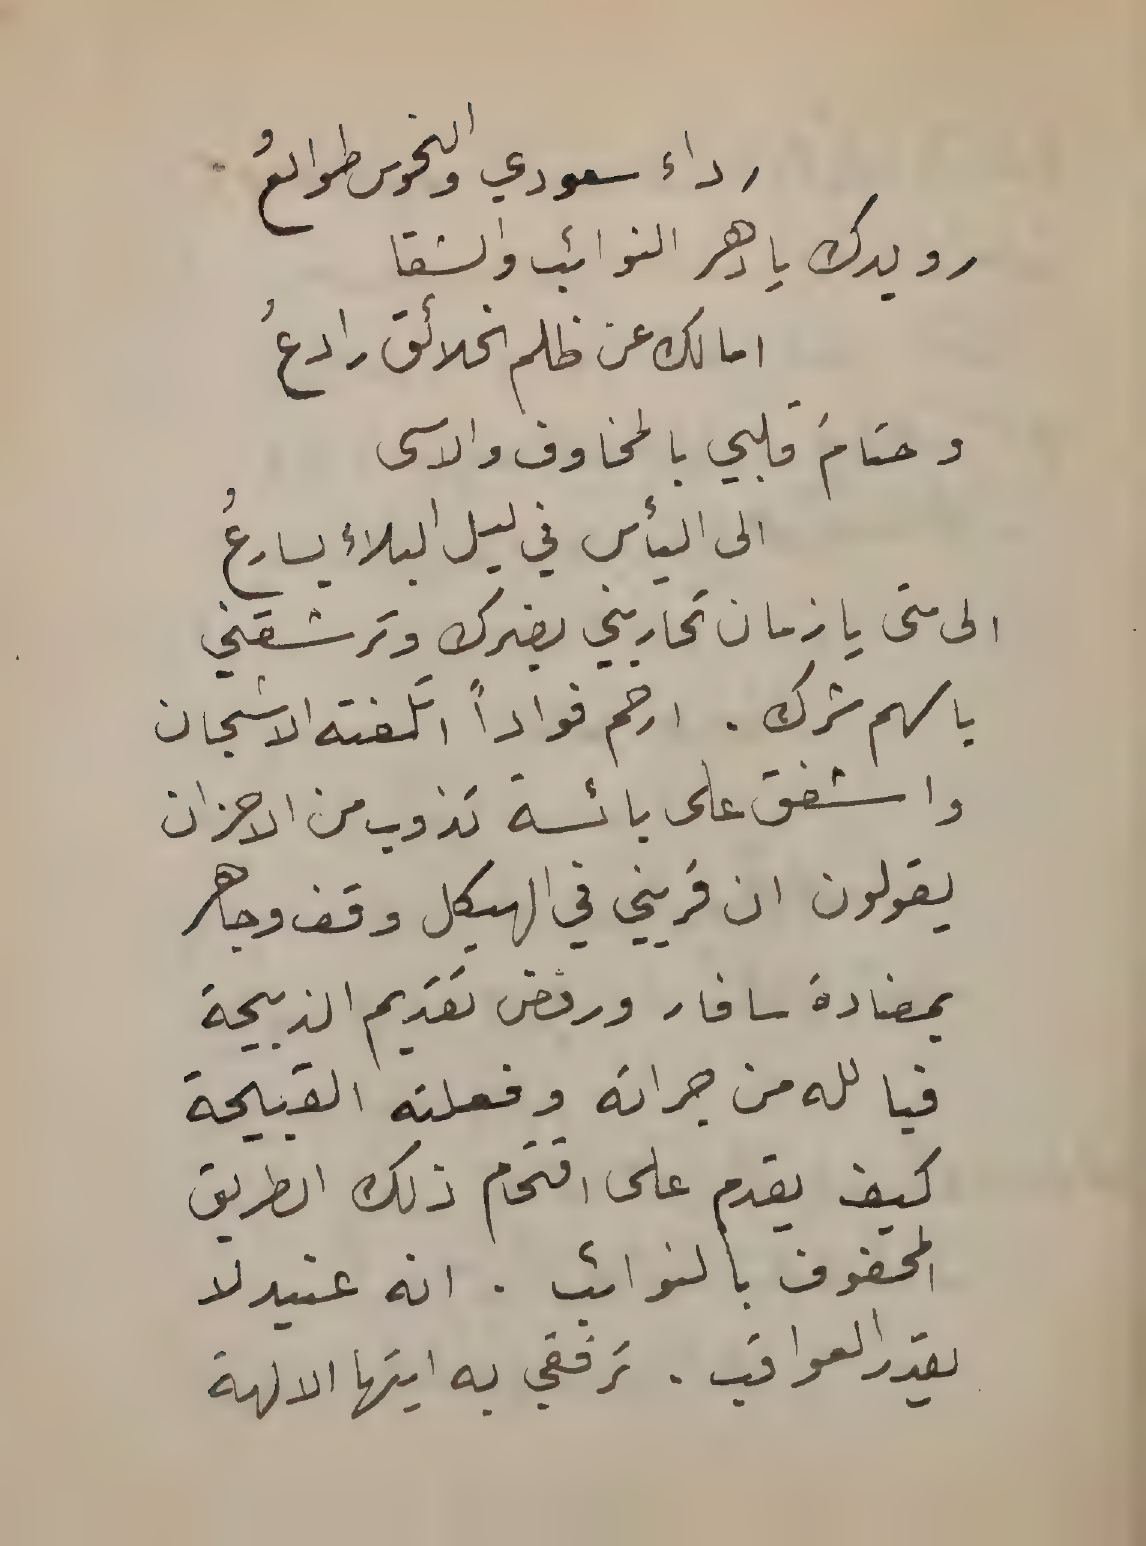 رداء سعودي والنحوس طوالعُ
رويدك يا دهر النوائب والشقا
امالك عن ظلم الخلائق رادعُ
وحتامَ قلبي بالمخاوف والاسى
الى اليأس في ليل البلاء يسارعُ
الى متى يا زمان تحاربني بضرك وترشقني
باسهم شرك . ارحم فواداً اتلفته الاشجان
واشفق على بائسة تذوب من الاحزان
يقولون ان قريني في الهيكل وقف وجاهر
بمضادة سافار ورفض تقديم الذبيحة
فيا لله من جراته وفعلته القبيحة
كيف يقدم على اقتحام ذلك الطريق
المحفوف بالنوائب . انه عنيد لا
يقدر العواقب . ترفقي به ايتها الالهة